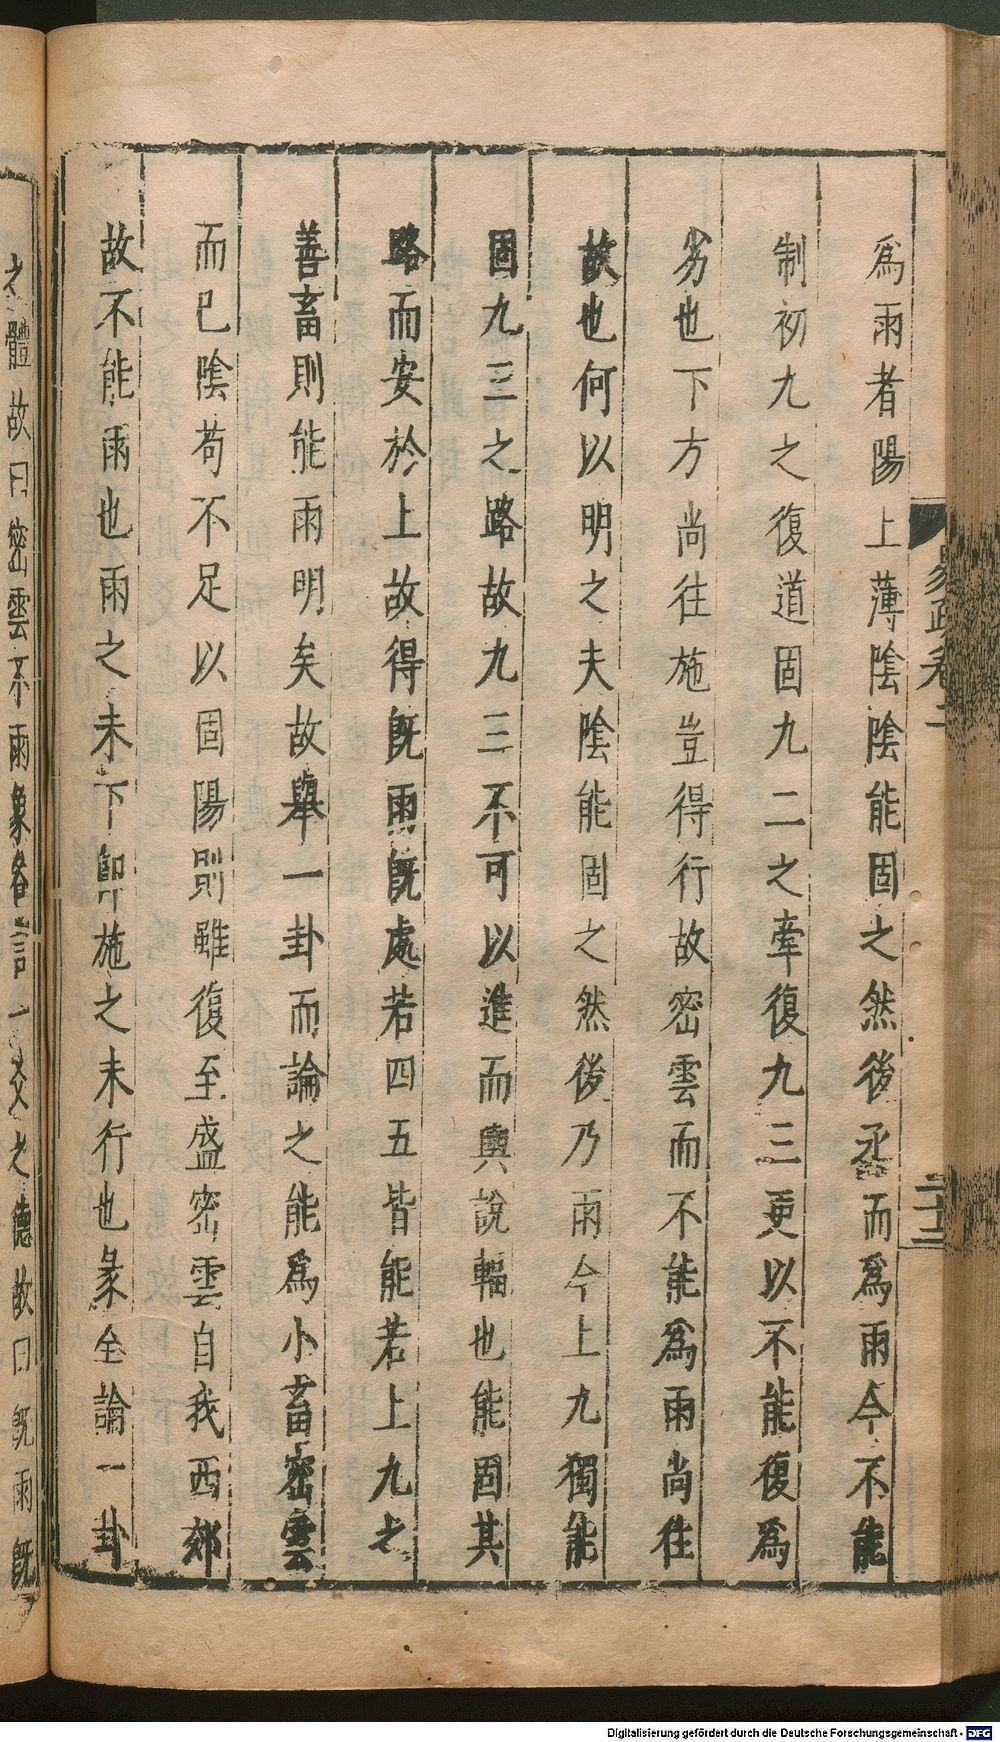 爲雨者陽上薄陰陰能固之然後烝而爲雨今不能
制初九之復道固九二之牽復九三更以不能復爲
劣也下方尚往施豈得行故密雲而不能爲雨尚往
故也何以明之夫陰能固之然後乃雨今上九獨能
固九三之路故九三不可以進而輿說輻也能固其
路而安於上故得旣雨旣處若四五皆能若上九之
善畜則能雨明矣故舉一卦而論之能爲小畜密雲
而已陰苟不足以固陽則雖復至盛密雲自我西郊
故不能雨也雨之未下卽施之未行也彖全論一卦
之體故曰密雲不雨象各言一爻之德故曰旣雨旣
二十三
Digitalisierung gefördert durch die Deutsche Forschungsgemeinschaft - DFG